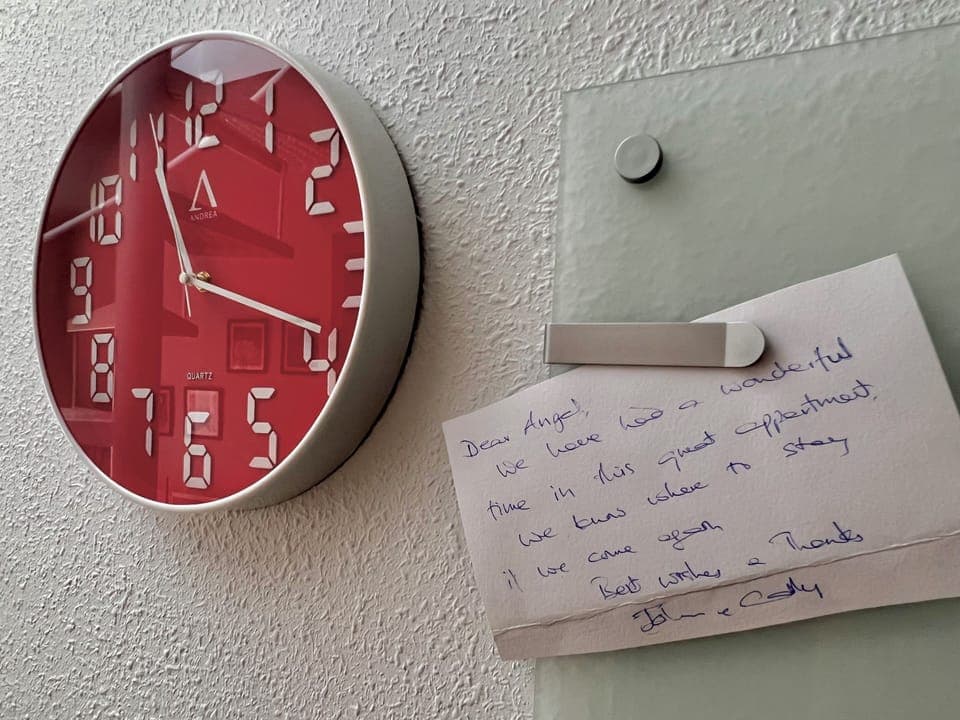 12
1
2
3
4
5
6
7
8
9
10
11
ANDREA
QUARTZ
Dear Angel,
We have had a wonderful
time in this great appartment.
We know where to stay
if we come again
Best wishes & Thanks
John &